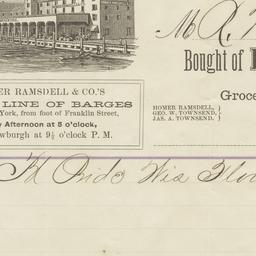 M R.
Bought of
Groce
HOMER RAMSDELL,
GEO. W. TOWNSEND,
JAS. A. TOWNSEND.
ER RAMSDELL & CO.'S
LINE OF BARGES
York, from foot of Franklin Street,
y Afternoon at 5 o'clock,
wburgh at 9½ o'clock P. M.